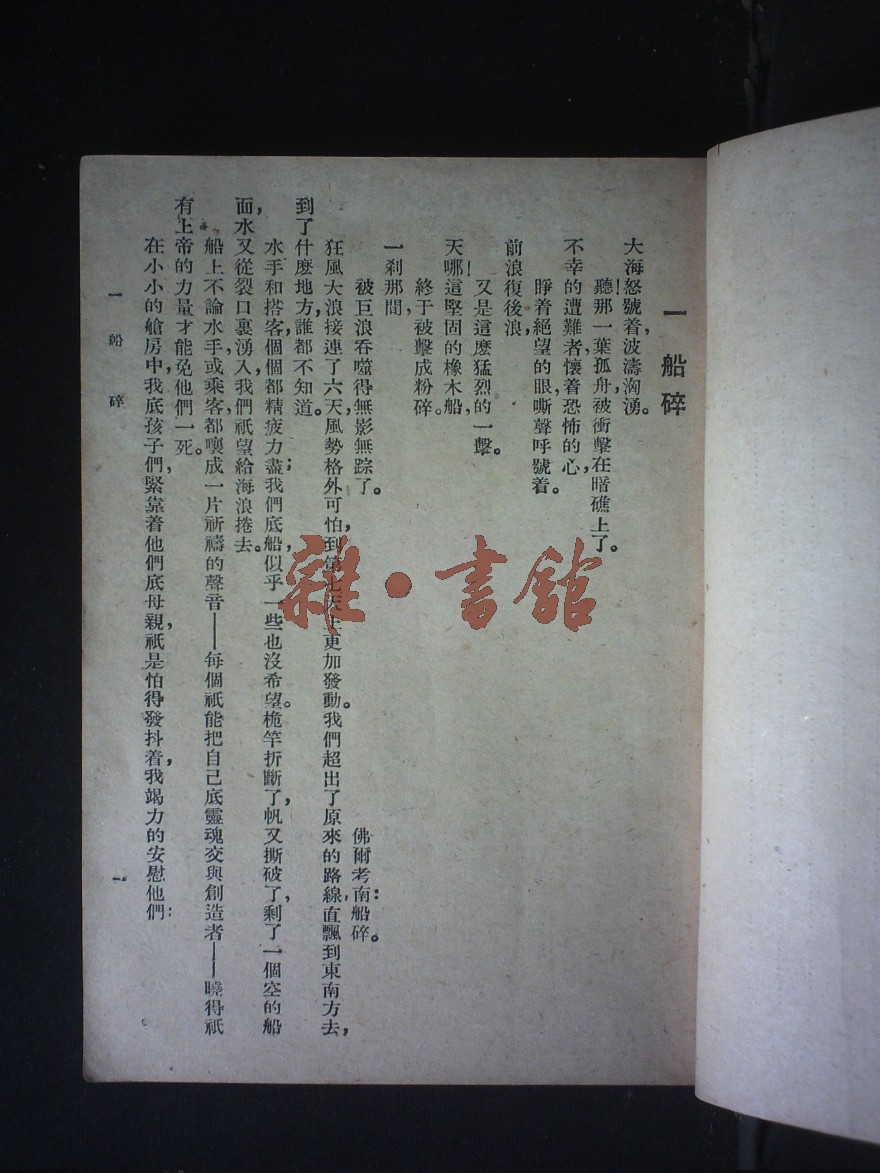 一 船碎
大海怒號着，波濤洶湧。
聽！那一葉孤舟，被衝擊在暗礁上了。
不幸的遭難者，懷着恐怖的心，
睜着絕望的眼，嘶聲呼號着。
前浪復後浪，
又是這麼猛烈的一擊。
天哪！這堅固的橡木船，
終于被擊成粉碎。
一剎那間，
被巨浪吞噬得無影無踪了。
佛爾考南：船碎。
狂風大浪接連了六天，風勢格外可怕，到第七天上更加發動。我們超出了原來的路線，直飄到東南方去，
到了什麼地方，誰都不知道。
水手和搭客，個個都精疲力盡；我們底船，似乎一些也沒希望。桅竿折斷了，帆又撕破了，剩了一個空的船
面，水又從裂口裏湧入，我們祇望給海浪捲去。
船上不論水手，或乘客，都嚷成一片祈禱的聲音——每個祇能把自己底靈魂交與創造者——曉得祇
有上帝的力量才能免他們一死。
在小小的艙房中，我底孩子們，緊靠着他們底母親，祇是怕得發抖着，我竭力的安慰他們：
一 船碎
一
雜·書館